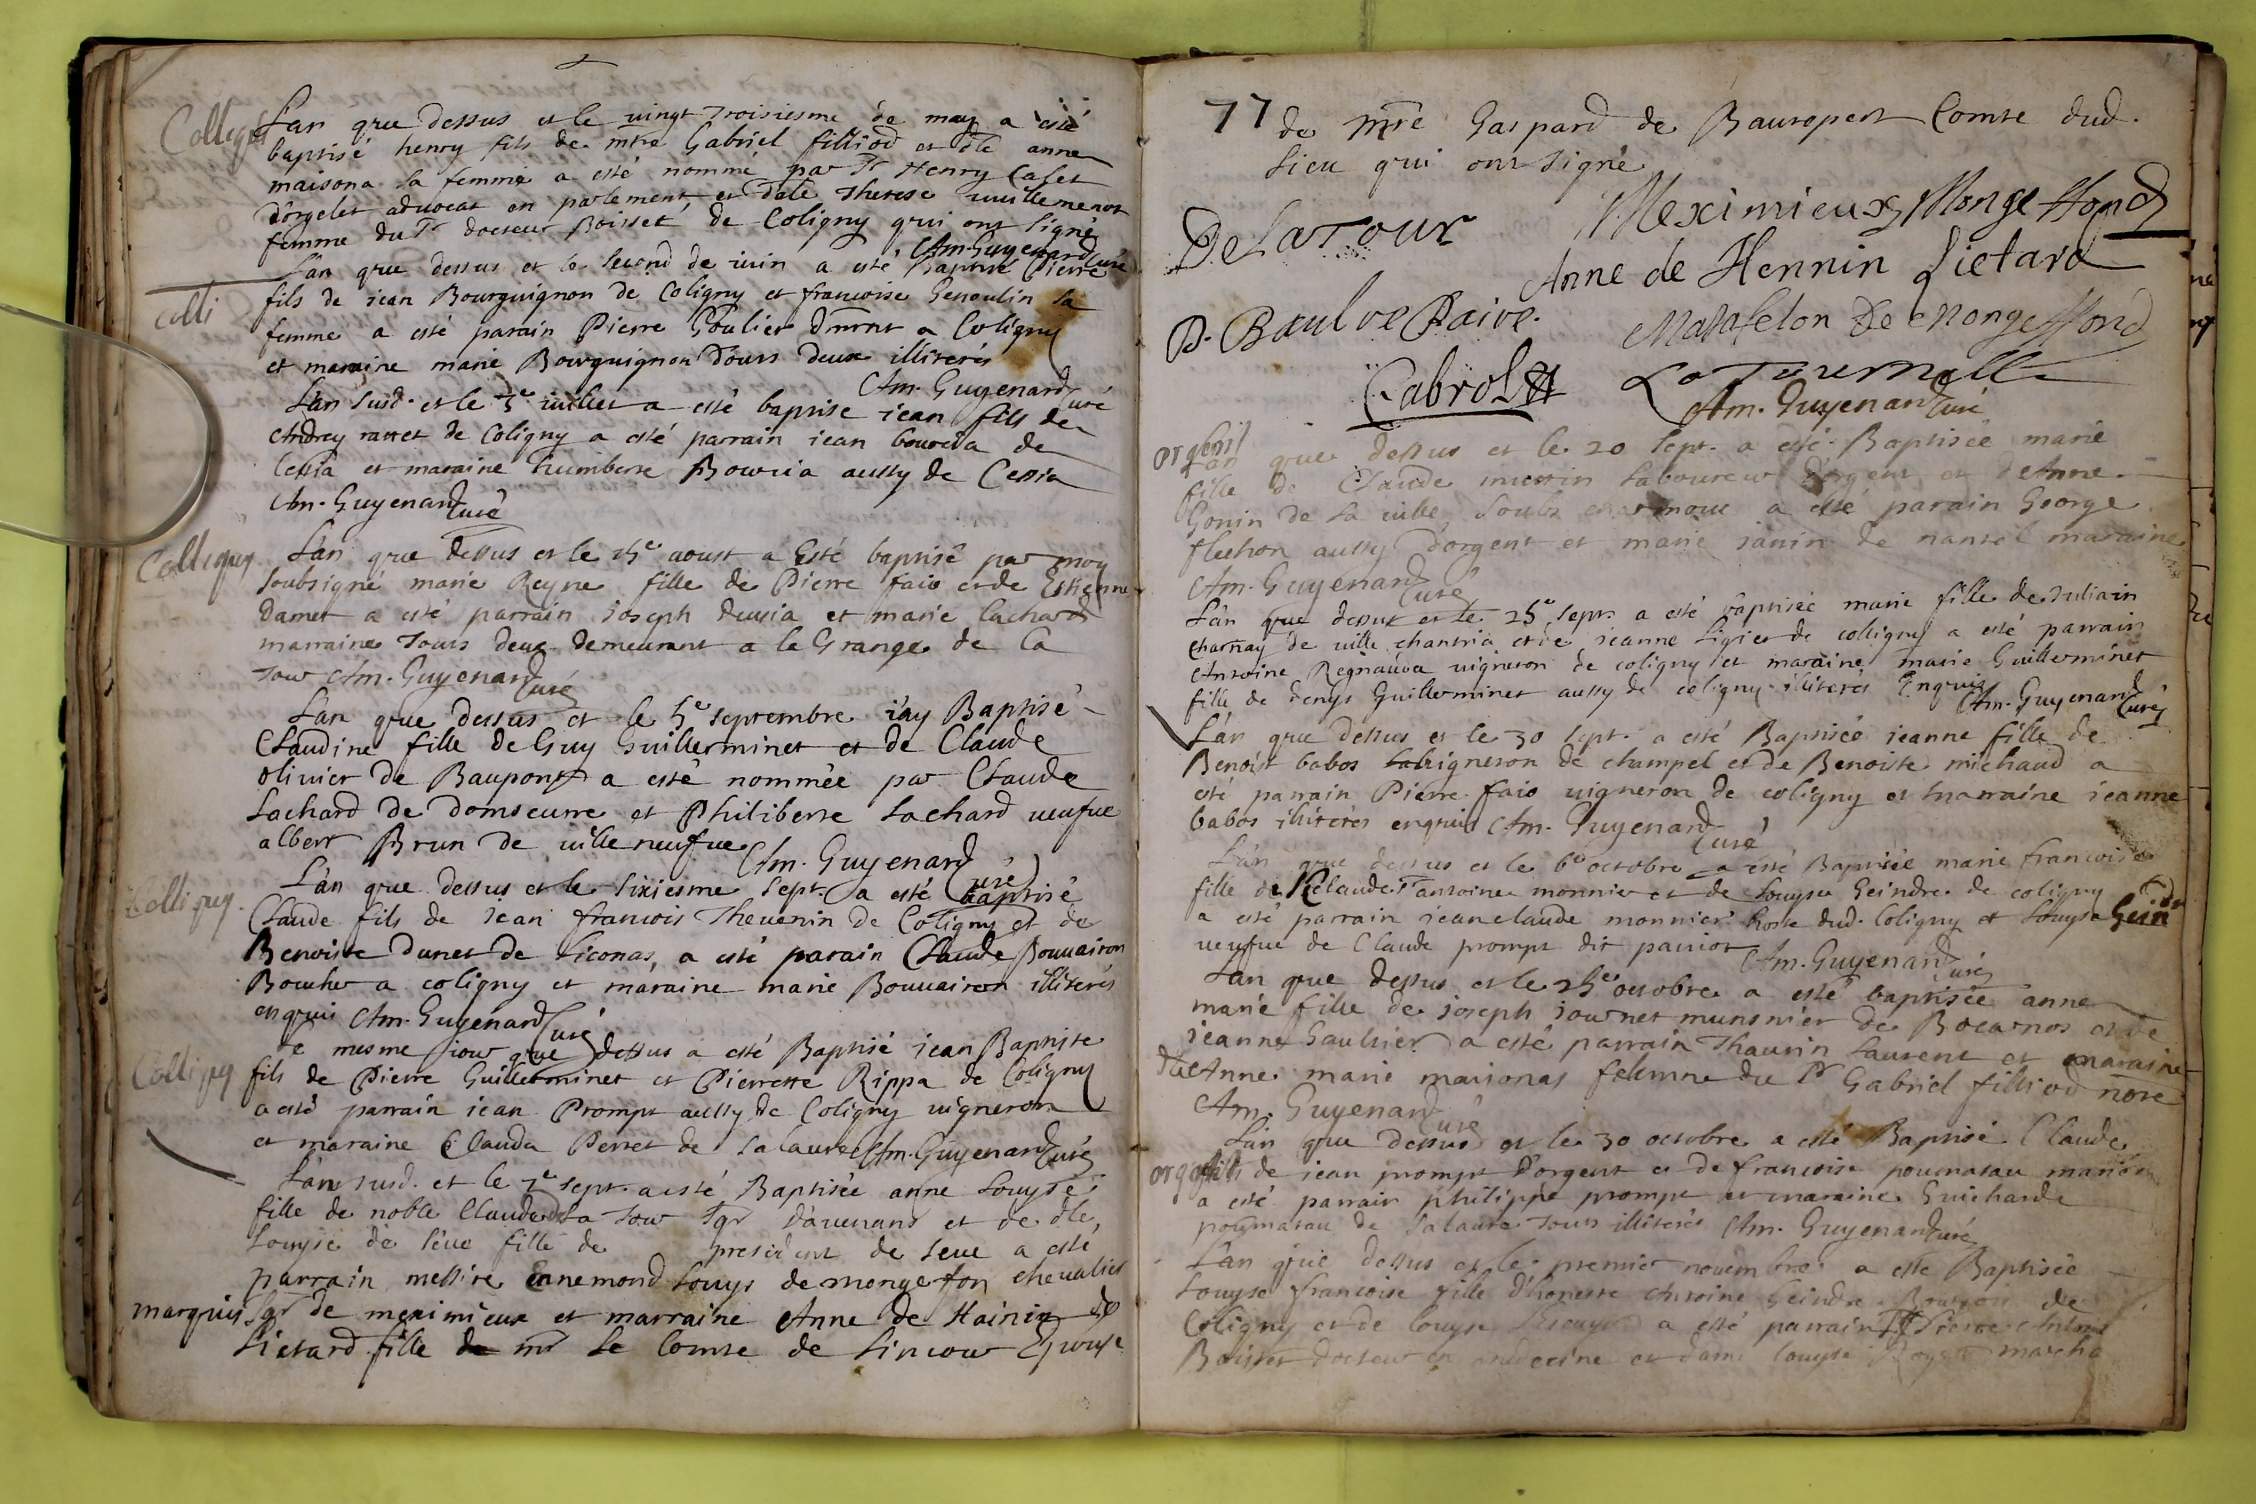 Collegni L'an que dessus et le vingt troisiesme de may a esté
baptisé henry fils de mtre Gabriel filliod et dlle anne
maisona sa femme a esté nommé par Sr Henry Caset
d'orgelet advocat en parlement et dalle Therese vuillemenot
femme du Sr docteur Boisset de Coligny qui ont signé
Am. Guyenard Curé
colli L'an que dessus et le second de iuin a esté Baptisé Pierre
fils de iean Bourguignon de Coligny et francoise Genoulin sa
femme a esté parain Pierre Goulier dmrnt a Coligny
et maraine marie Bourguignon tous deux illiterés
Am. Guyenard Curé
L'an susd. et le 3e iuillet a esté baptise iean fils de
Andrey rattet de Coligny a esté parrain iean bourcia de
Cessia et maraine humberte Bourcia aussy de Cessia
Am. Guyenard Curé
Colligny L'an que dessus et le 15e aoust a Esté baptisé par moy
soubsigné marie Reyne fille de Pierre faio et de Estienne
Damet a esté parrain ioseph deussia et marie Lachard
marraine tous deux demeurant a la Grange de la
tour Am. Guyenard Curé
L'an que dessus et le 5e septembre i'ay Baptisé
Claudine fille de Guy Guillerminet et de Claude
olivier de Baupont a esté nommée par Claude
Lachard de domseurre et Philiberte Lachard veufue
albert Brun de uilleneufue Am. Guyenard Curé
Colligny. L'an que dessus et le sixiesme Sept. a esté baptisé
Claude fils de iean francois Theuenin de Coligny et de
Benoiste dunet de Liconas, a esté parain Claude Bouuairon
Boucher a coligny et maraine marie Bouuairon illiterés
enquis Am. Guyenard Curé
Colligny Le mesme jour que dessus a esté Baptisé iean Baptiste
fils de Pierre Guillerminet et Pierrette Rippa de Coligny
a esté parrain iean Prompt aussy de Coligny uigneron
et maraine Clauda Perret de Salaure Am. Guyenard Curé
L'an susd. et le 7e sept. a esté Baptisée anne Louyse
fille de noble Claude De La Tour Sgr d'auenans et de dlle,
Louyse de séue fille de president de seue a esté
parrain messire Ennemond Louys de mongefon chevalier
marquis Sgr de meximieux et marraine Anne de Hainin de
Lietard fille de mr le Comte de Lincour Espouse
77 de mre Gaspard de Bauropert Comte dud.
Lieu qui ont signé
De La Tour Meximieux Monge ffond
Anne de Hennin Lietard
D. Baulve Paive. Matafelon de Mongeffond
Cabrol La Tournelle
Am. Guyenard Curé
orgent L'an que dessus et le 20 Sept. a esté Baptisée marie
fille de Claude laboureur d'orgent et de Anne
Gonin de la uille soubs charmoux a esté parain George
flechon aussy d'orgent et marie ianin de nantel maraine
Am. Guyenard Curé
L'an que dessus et le 25e sept. a esté baptisée marie fille de Iulian
charnay de uille chantria et de ieanne Ligier de colligny a esté parrain
Antoine Regnauda uigneron de coligny et maraine marie Guillerminet
fille de denys Guillerminet aussy de coligny illiterés Enquis
Am. Guyenard Curé
L'an que dessus et le 30 sept. a esté Baptisée ieanne fille de
Benoist babos uigneron de champel et de Benoiste michaud a
esté parrain Pierre faio uigneron de coligny et marraine ieanne
babos illiterés enquis Am. Guyenard Curé
L'an que dessus et le 6e octobre a esté Baptisée marie francoise
fille de Klaude antoine monnier et de Louyse Geindre de coligny
a esté parrain iean claude monnier hoste dud. Coligny et Louyse Geindre
ueufue de Claude prompt dit pariot Am. Guyenard Curé
L'an que dessus et le 25e octobre a esté baptisée anne
marie fille de ioseph iournet munsnier de Bocarnos et de
ieanne Gaultier a esté parrain Thaurin Laurent et maraine
dlle Anne marie maisonas femme du Sr Gabriel filliod nore
Am. Guyenard Curé
L'an que dessus et le 30 octobre a esté Baptisé Claude
orgent fils de iean prompt d'orgent et de francoise poumatau mariés
a esté parrain philippe prompt et maraine Guicharde
poumatau de Salaure tous illiterés Am. Guyenard Curé
L'an que dessus et le premier nouembre a esté Baptisée
Louyse francoise fille d'honeste Antoine Geindre de
Coligny et de Louyse a esté parrain Sr Pierre
Boisset docteur en medecine et dame Louyse